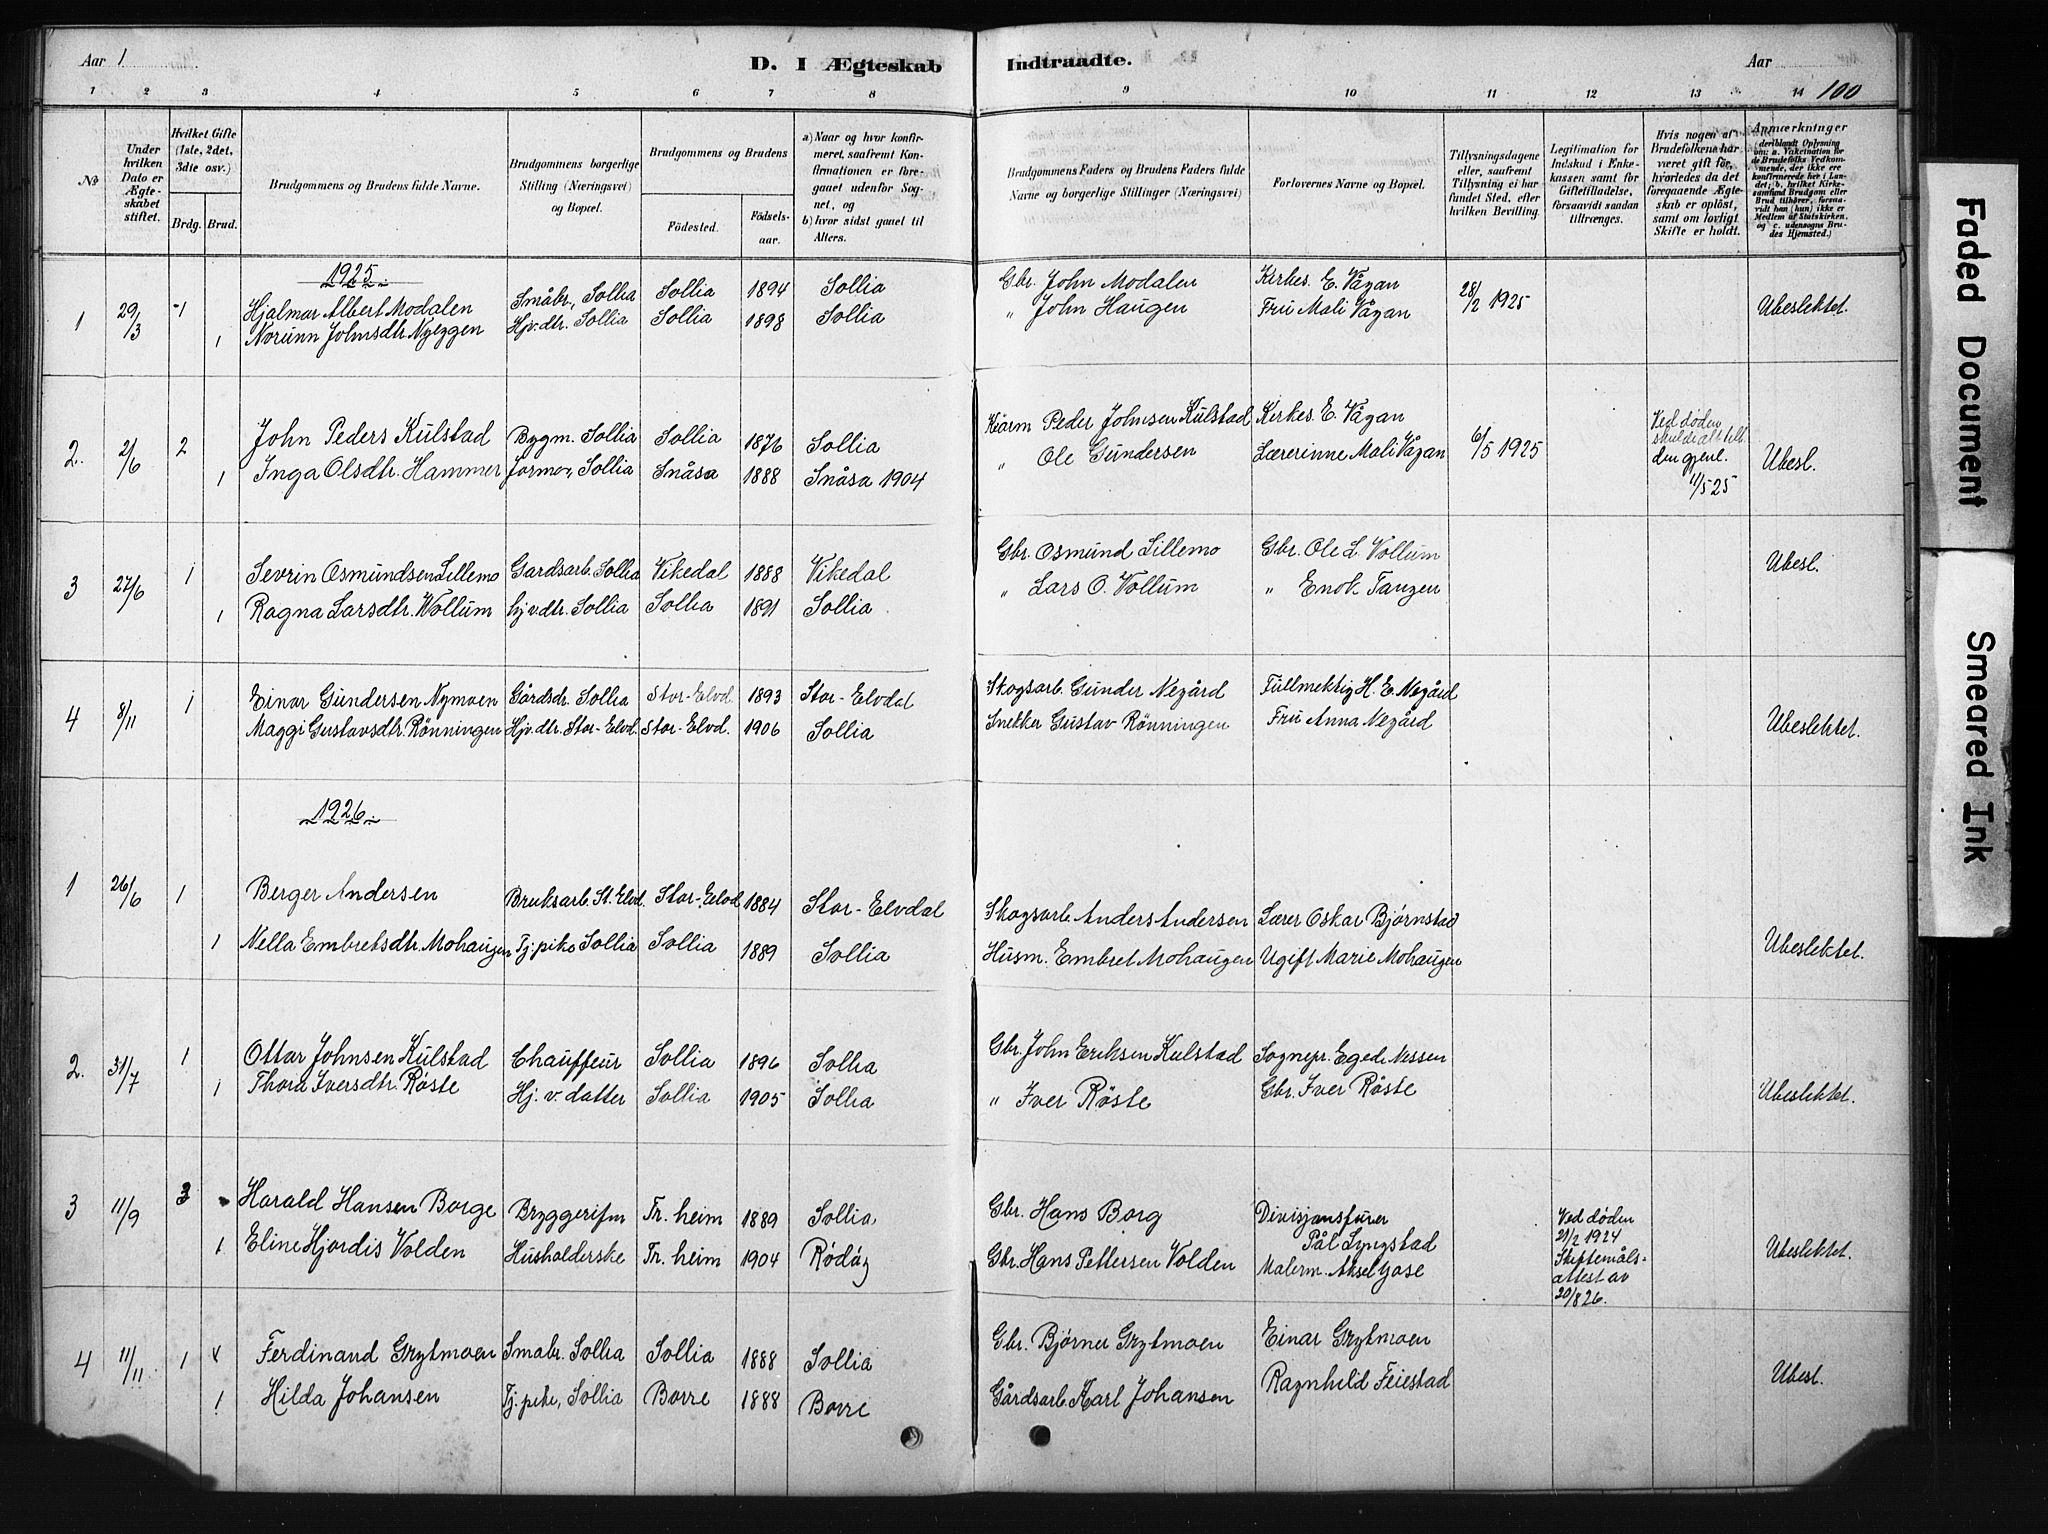 Aar 1
D. I Ægteskab Indtraadte.
Aar
100
1 2 3 4 5 6 7 8 9 10 11 12 13 14
No
Under hvilken Dato er Ægteskabet stiftet.
Hvilket Gifte (1ste, 2det, 3die osv.)
Brdg. Brud.
Brudgommens og Brudens fulde Navne.
Brudgommens borgerlige Stilling (Næringsvei) og Bopæl.
Brudgommens og Brudens
Födested.
Födselsaar.
a) Naar og hvor konfirmeret, saafremt Konfirmationen er foregaaet udenfor Sognet, og
b) hvor sidst gaaet til Alters.
Brudgommens Faders og Brudens Faders fulde Navne og borgerlige Stillinger (Næringsvei)
Forlovernes Navne og Bopæl.
Tillysningsdagene eller, saafremt Tillysning ei har fundet Sted, efter hvilken Bevilling.
Legitimation for Indskud i Enkekassen samt for Giftetilladelse, forsaavidt saadan tiltrænges.
Hvis nogen af Brudefolkene har været gift för, hvorledes da det foregaaende Ægteskab er oplöst, samt om lovligt Skifte er holdt.
Anmærkninger (deriblandt Oplysning om: a. Vakcination for de Brudefolks Vedkommende, der ikke ere konfirmerede her i Landet; b. hvilket Kirkesamfund Brudgom eller Brud tilhører, forsaavidt han (hun) ikke er Medlem af Statskirken, og c. udensogns Brudes Hjemsted.)
1925.
1 29/3 1 Hjalmar Albert Modalen Småbr., Sollia Sollia 1894 Sollia Gbr. John Modalen Kirkes. E. Vågan 28/2 1925 Ubeslektet.
1 Norunn Johnsdtr. Nyeggen Hjv.dtr. Sollia Sollia 1898 Sollia " John Haugen Fru Mali Vågan
2. 2/6 2 John Peders Kulstad Bygm. Sollia Sollia 1876 Sollia Kårm Peder Johnsen Kulstad Kirkes. E. Vågan 6/5 1925 Ved døden
1 Inga Olsdtr. Hammer Jormor, Sollia Snåsa 1888 Snåsa 1904 " Ole Gundersen Lærerinne Mali Vågan den gjenl. 11/5 25 Ubesl.
3 27/6 1 Sevrin Osmundsen Lillemo Gardsarb. Sollia Vikedal 1888 Vikedal Gbr. Osmund Lillemo Gbr. Ole L. Vollum Ubesl.
1 Ragna Larsdtr. Wollum hjv.dtr. Sollia Sollia 1891 Sollia " Lars O. Vollum " Enok Tangen
4 8/11 1 Einar Gundersen Nymoen Gårdsdr. Sollia Stor-Elvd. 1893 Stor-Elvdal Skogsarb. Gunder Negård Fullmektig H. E. Negård
Maggi Gustavsdtr. Rönningen Hjv.dtr. Stor-Elvd. Stor-Elvd. 1906 Sollia Snekker Gustav Rönningen Fru Anna Negård Ubeslektet.
1926.
1 26/6 1 Berger Andersen Bruksarb. St. Elvd. Stor-Elvd 1884 Stor-Elvdal Skogsarb. Anders Andersen Lærer Oskar Bjørnstad
1 Nella Embretsdtr. Mohaugen Tj.pike Sollia Sollia 1889 Sollia Husm. Embret Mohaugen Ugift Marie Mohaugen Ubeslektet.
2. 31/7 1 Ottar Johnsen Kulstad Chauffeur Sollia 1896 Sollia Gbr. John Eriksen Kulstad Sognepr. Egede Nissen
1 Thora Iversdtr. Röste Hj. v. datter Sollia 1905 Sollia " Iver Röste Gbr. Iver Röste Ubeslektet.
3 11/9 3 Harald Hansen Borge Bryggerifm Tr. heim 1889 Sollia Gbr. Hans Borg Divisjonsfurer Pål Lyngstad Ved døden 21/2 1924
1 Eline Hjordis Volden Husholderske Tr. heim 1904 Rödöy Gbr. Hans Pettersen Volden Malerm. Aksel Gase Skiftemåls-attest av 20/8 26. Ubeslektet.
4 11/11 1 Ferdinand Grytmoen Smabr. Sollia Sollia 1888 Sollia Gbr. Bjørner Grytmoen Einar Grytmoen
1 Hilda Johansen Tj. pike, Sollia Borre 1888 Borre Gårdsarb. Karl Johansen Ragnhild Feiestad Ubesl.
Faded Document
Smeared Ink